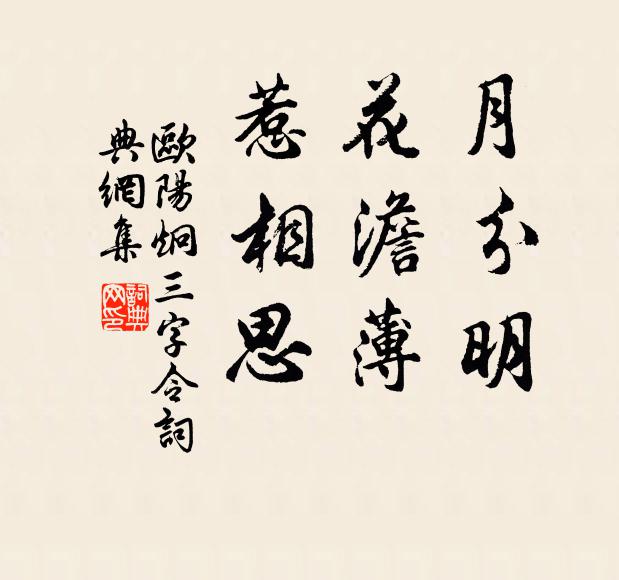 月分明
花澹薄
惹相思
歐陽炯三字令詞
典網集
詞典網印